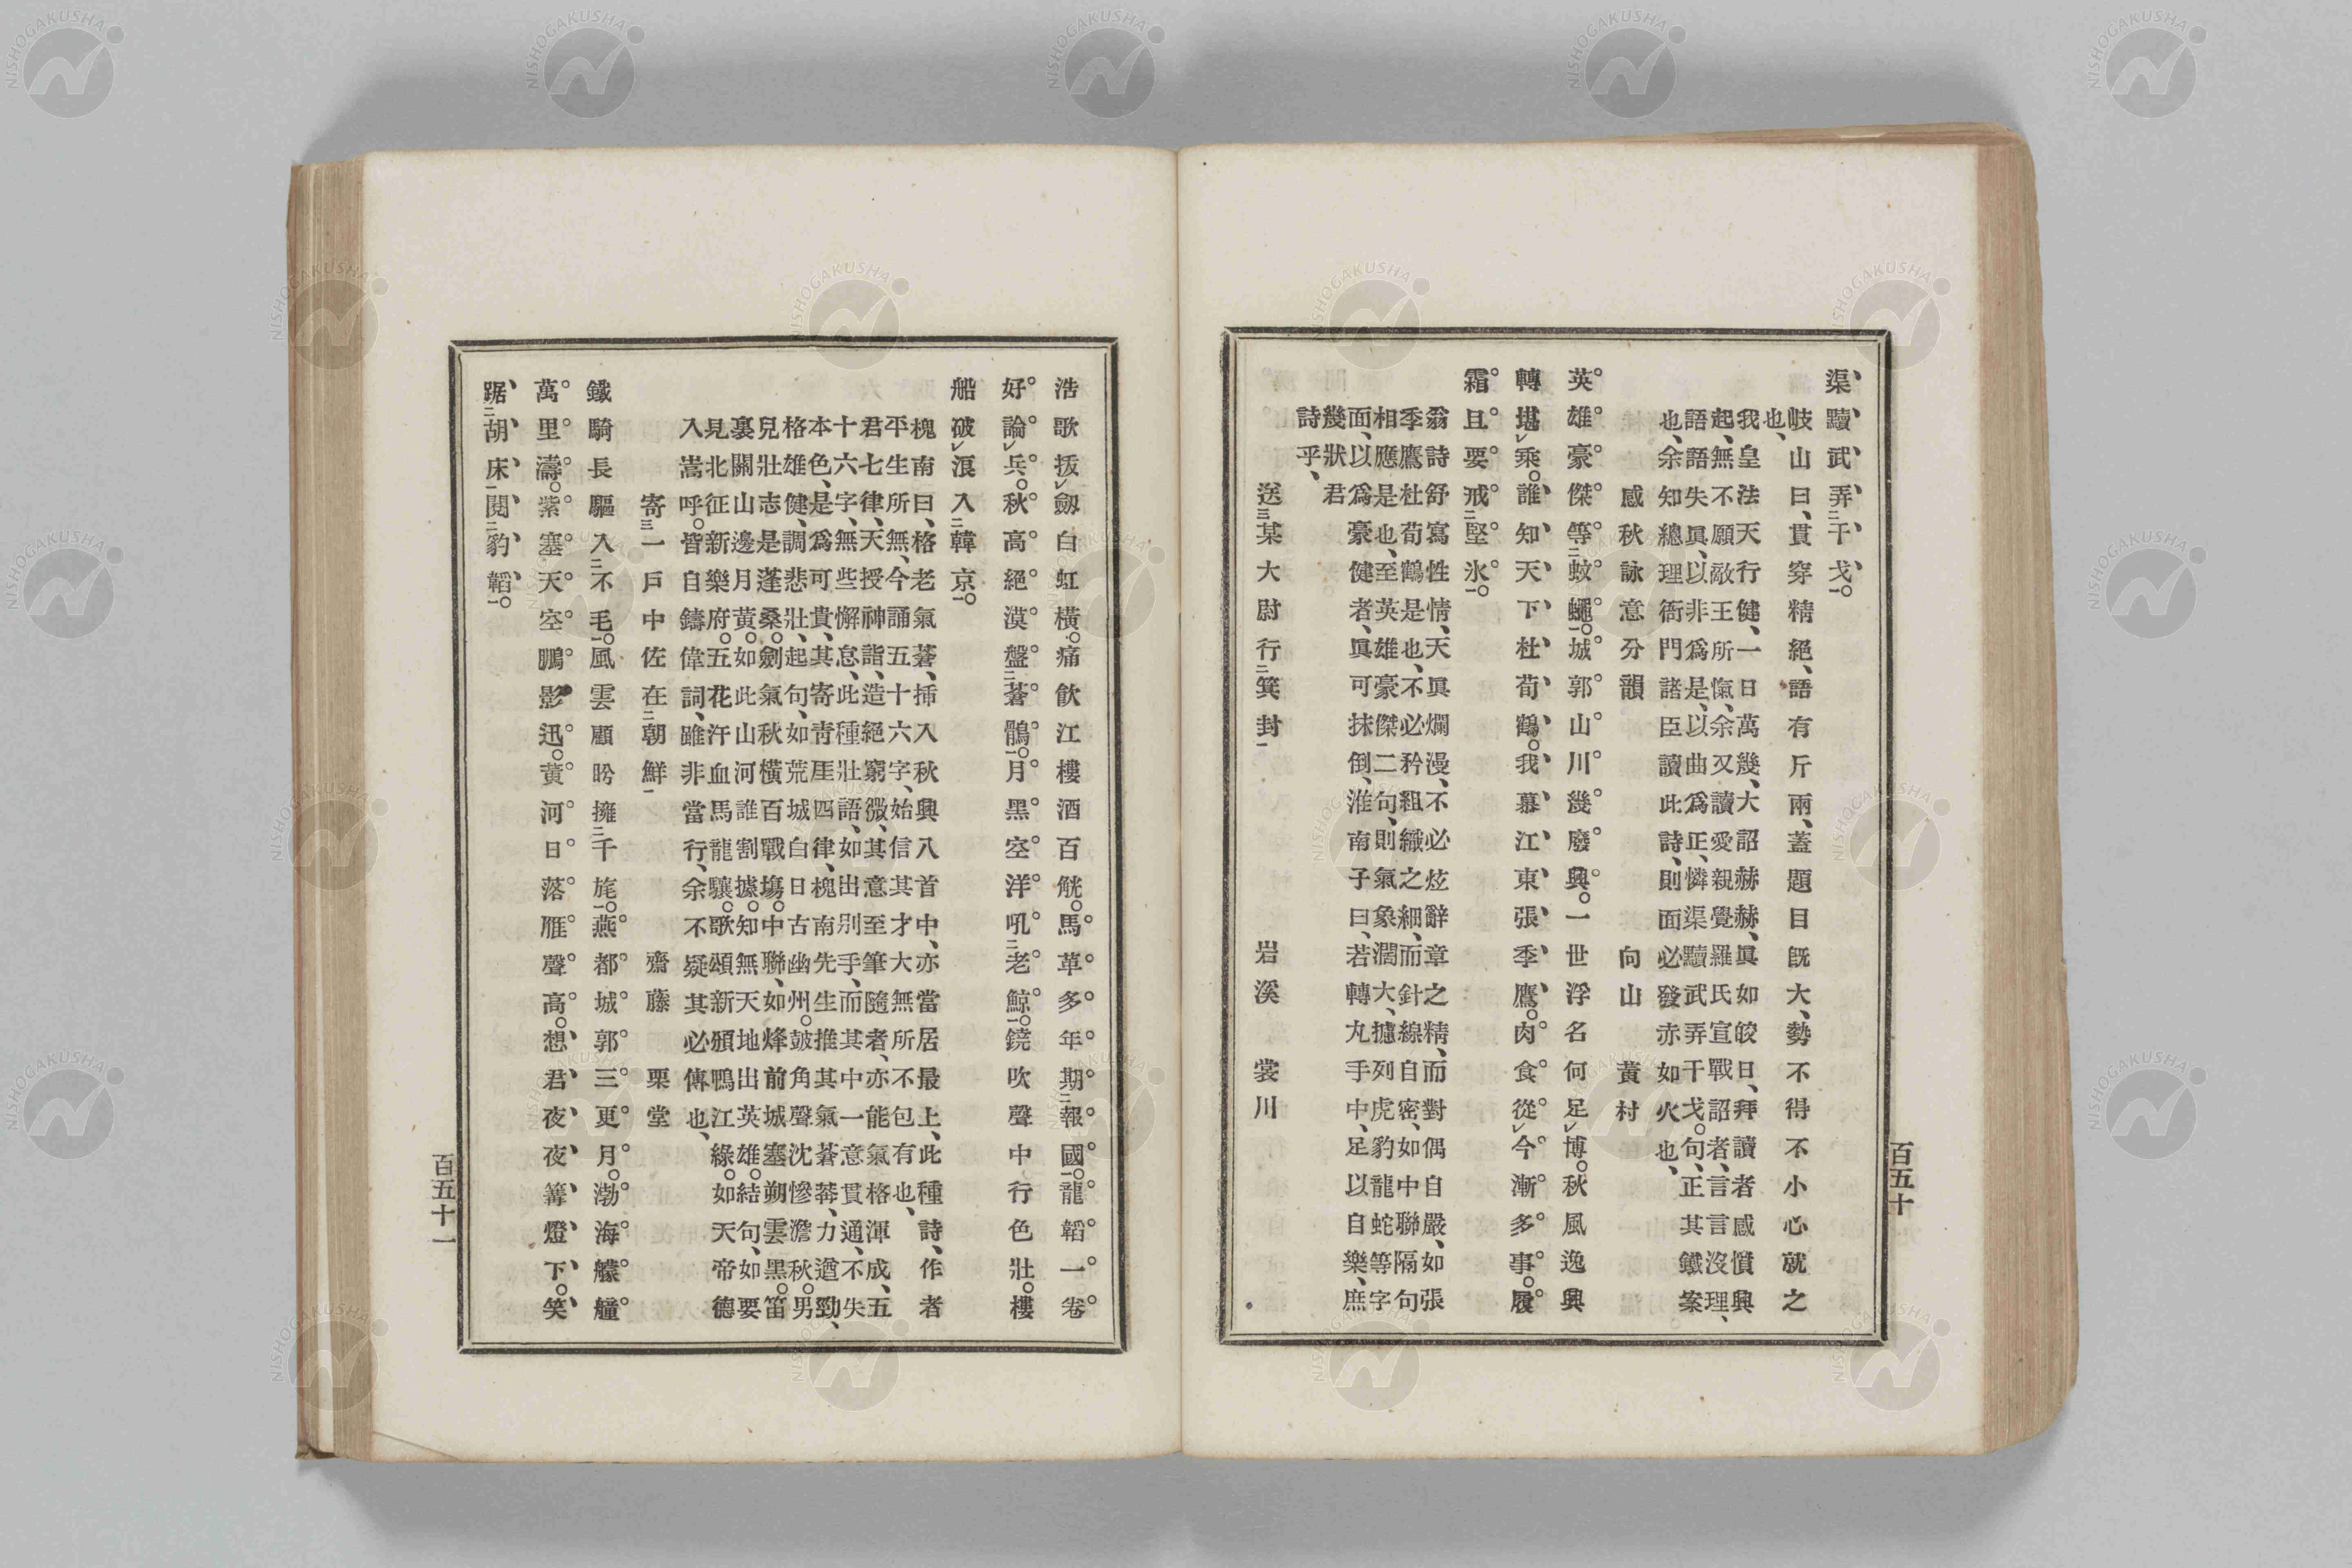 渠黷武弄二干戈一。
岐山曰、貫穿精絕、語有斤兩、蓋題目既大、勢不得不小心就之
也、
我皇法天行健、一日萬幾、大詔赫赫、眞如皎日、拜讀者感憤興
起、無不願敵王所愾、余又讀愛親覺羅氏宣戰詔者、言言沒理、
語語失眞、以非爲是、以曲爲正、憐渠黷武弄干戈。句、正其鐵案
也、余知總理衙門諸臣讀此詩、則面必發赤如火也、
感秋詠意分韻 向山黃村
英雄豪傑等二蚊蠅一。城郭山川幾廢興。一世浮名何足レ博。秋風逸興
轉堪レ乘。誰知天下杜荀鶴。我慕江東張季鷹。肉食從レ今漸多事。履
霜且要戒二堅氷一。
翁詩舒寫性情、天眞爛漫、不必炫辭章之精、而對偶自嚴、如張
季鷹杜荀鶴是也、不必矜組織之細、而針線自密、如中聯隔句
相應是也、至英雄豪傑二句、則氣象濶大、攄列虎豹龍蛇等字
面、以爲豪健者、眞可抹倒、淮南子曰、若轉丸手中、足以自樂、庶
幾狀君
詩乎、
送三某大尉行二箕封一 岩溪裳川
百五十
浩歌拔レ劔白虹橫。痛飲江樓酒百觥。馬革多年期二報國一。龍韜一卷
好論レ兵。秋高絕漠盤二蒼鶻一。月黑空洋吼二老鯨一。鐃吹聲中行色壯。樓
船破レ浪入二韓京一。
槐南曰、格老氣蒼、揷入秋興八首中、亦當居最上、此種詩、作者
平生所無、今誦五十六字、始信其才大無所不包有也、
君七律、天授神詣、造絕窮微、其意至筆隨者、亦能氣格渾成、五
十六字、無些懈怠、此種壯語、如出別手、而其中一意貫通、不失
本色、是爲可貴、其寄靑厓四律、槐南先生推其氣蒼莽、力遒勁、
格雄健、調悲壯、起句、如荒城白日古幽州。皷角聲沈慘澹秋。男
兒壯志是蓬桑。劍氣秋橫百戰塲。中聯、如烽前城塞朔雲黑。笛
裏關山邊月黃。如此山河誰割據。知無天地出英雄。結句、如要
見北征新樂府。五花汗血馬龍驤。歌頌新頒鴨江綠。如天帝德
入嵩呼。皆自鑄偉詞、雖非當行、余不疑其必傳也、
寄三一戶中佐在二朝鮮一 齋藤栗堂
鐵騎長驅入二不毛一。風雲顧眄擁二千旄一。燕都城郭三更月。渤海艨艟
萬里濤。紫塞天空鵬影迅。黃河日落雁聲高。想君夜夜篝燈下。笑
踞二胡床一閱二豹韜一。
百五十一
NISHOGAKUSHA